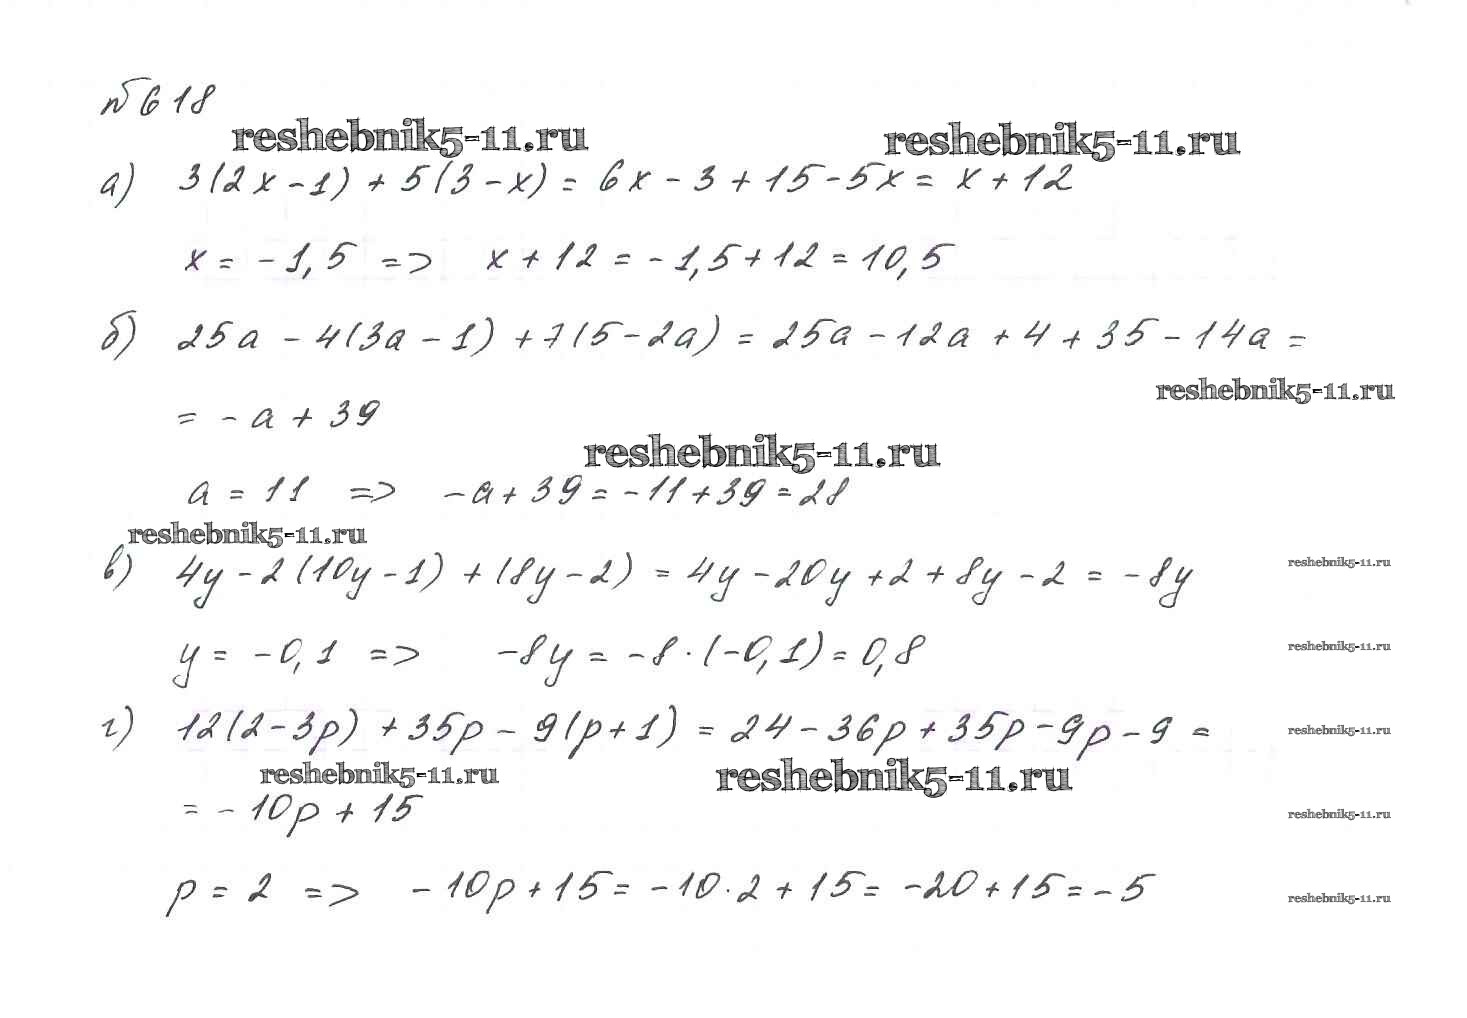 № 618
reshebnik5-11.ru reshebnik5-11.ru
а) 3(2x - 1) + 5(3 - x) = 6x - 3 + 15 - 5x = x + 12
x = - 1,5 => x + 12 = - 1,5 + 12 = 10,5
б) 25a - 4(3a - 1) + 7(5 - 2a) = 25a - 12a + 4 + 35 - 14a =
reshebnik5-11.ru
= - a + 39
reshebnik5-11.ru
a = 11 => - a + 39 = - 11 + 39 = 28
reshebnik5-11.ru
в) 4y - 2(10y - 1) + (8y - 2) = 4y - 20y + 2 + 8y - 2 = - 8y
reshebnik5-11.ru
y = - 0,1 => - 8y = - 8 · (- 0,1) = 0,8
reshebnik5-11.ru
г) 12(2 - 3p) + 35p - 9(p + 1) = 24 - 36p + 35p - 9p - 9 =
reshebnik5-11.ru
reshebnik5-11.ru reshebnik5-11.ru
= - 10p + 15
reshebnik5-11.ru
p = 2 => - 10p + 15 = - 10 · 2 + 15 = - 20 + 15 = - 5
reshebnik5-11.ru